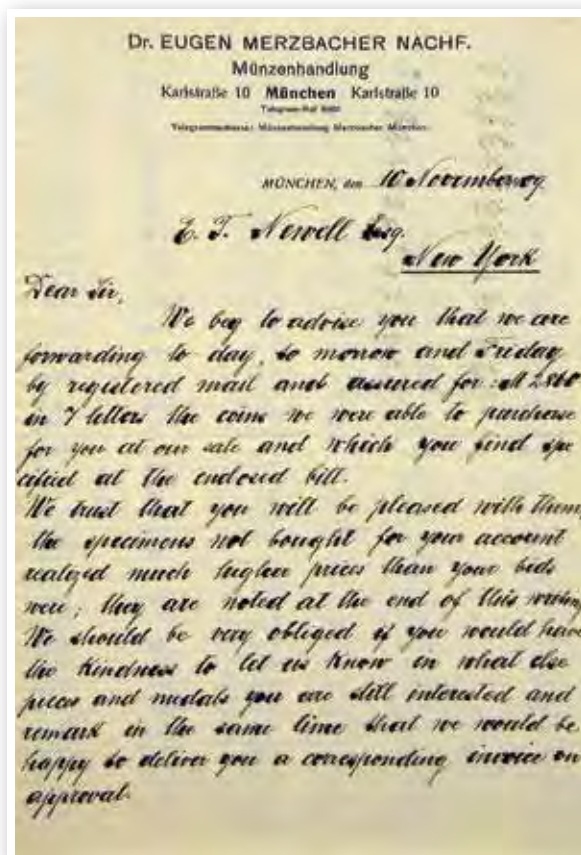 Dr. EUGEN MERZBACHER NACHF.
Münzenhandlung
Karlstraße 10 München Karlstraße 10
Telegrammadresse: Münzenhandlung Merzbacher München.
MÜNCHEN, den 10 November 09
E. T. Newell Esq.
New York
Dear Sir,
We beg to advise you that we are
forwarding to day, to morrow and Friday
by registered mail and assured for M 2800
in 7 letters the coins we were able to purchase
for you at our sale and which you find spe
cified at the enclosed bill.
We trust that you will be pleased with them,
the specimens not bought for your account
realized much higher prices than your bids
were; they are noted at the end of this writing
We should be very obliged if you would have
the kindness to let us know in what else
pieces and medals you are still interested and
remark in the same time that we would be
happy to deliver you a corresponding invoice on
approval.